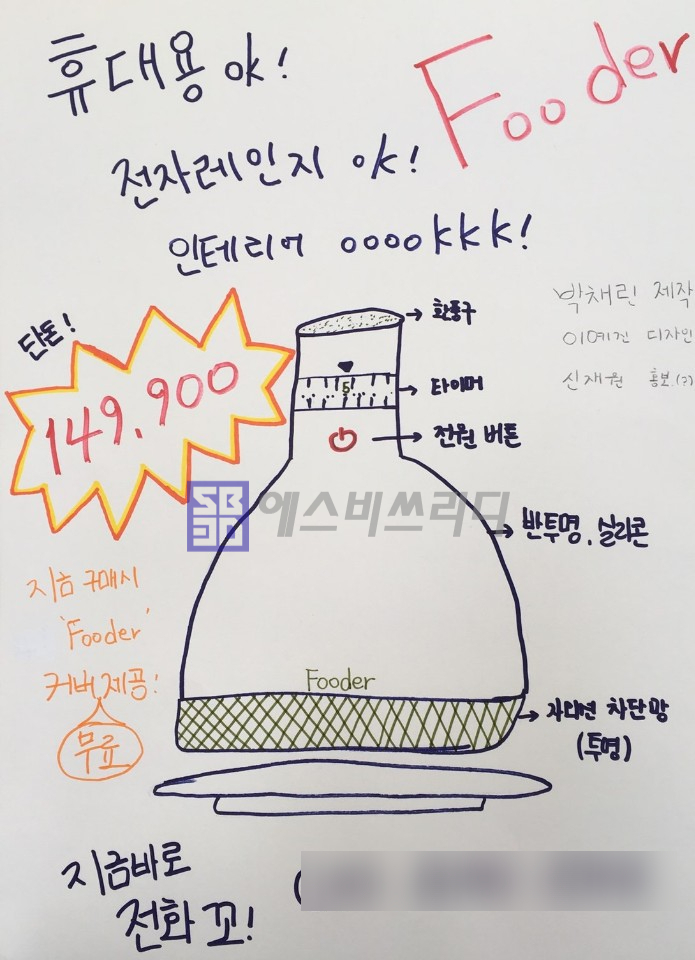 휴대용 ok!
Fooder
전자레인지 ok!
인테리어 ooookkk!
박채린 제작
이예진 디자인
신재원 홍보(?)
단돈!
149.900
환풍구
5
타이머
전원 버튼
SB
에스비쓰리디
반투명.실리콘
지금 구매시
'Fooder'
커버제공!
무료
Fooder
차단망
(투명)
지금바로
전화 꼬!